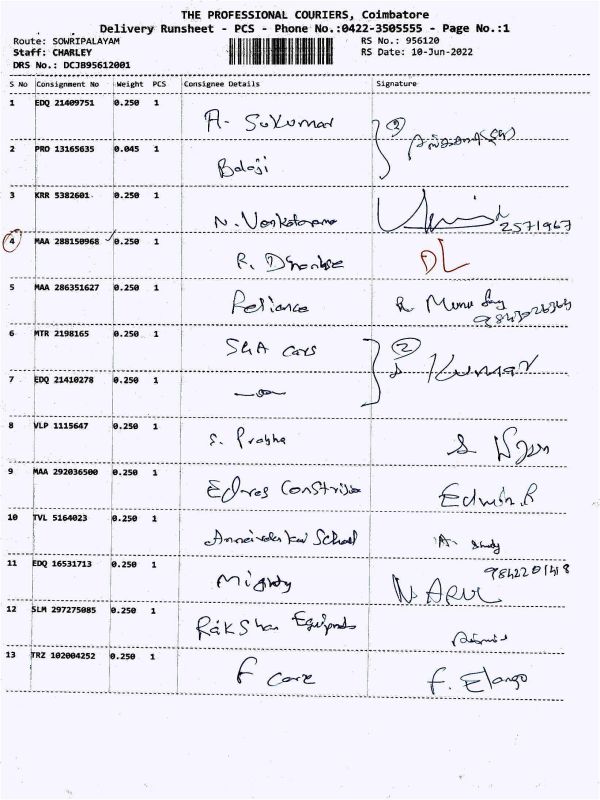 THE PROFESSIONAL COURIERS, Coimbatore
Delivery Runsheet - PCS - Phone No.:0422-3505555 - Page No.:1
Route: SOWRIPALAYAM
RS No.: 956120
Staff: CHARLEY
RS Date: 10-Jun-2022
DRS No.: DCJB95612001
S No Consignment No Weight PCS Consignee Details Signature
1 EDQ 21409751 0.250 1
A. Sukumar
2
2 PRO 13165635 0.045 1
Balaji
3 KRR 5382601 0.250 1
N. Venkatarama
2571967
4 MAA 288150968 0.250 1
R. DL
5 MAA 286351627 0.250 1
Reliance R.
6 MTR 2198165 0.250 1
S&A Cars 2 Kumar
7 EDQ 21410278 0.250 1
8 VLP 1115647 0.250 1
S. Prabha S
9 MAA 292036500 0.250 1
Edwin.R
10 TVL 5164023 0.250 1
School A.
11 EDQ 16531713 0.250 1
9842201418
Mighty N. ARUL
12 SLM 297275085 0.250 1
Rakshan
13 TRZ 102004252 0.250 1
F care F. Elango